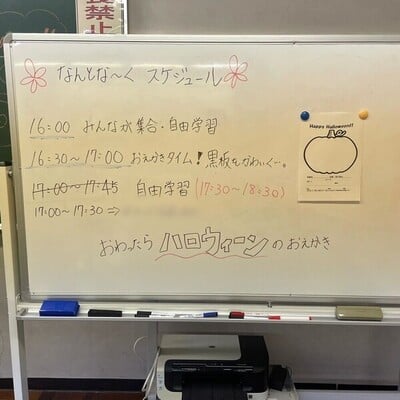 禁止
なんとな〜く スケジュール
16:00 みんな水集合・自由学習
16:30〜17:00 おえかきタイム!黒板をかわいく…。
17:00〜17:45 自由学習 (17:30〜18:30)
17:00〜17:30 ⇒
おわったら ハロウィーン のおえかき
Happy Halloween!!